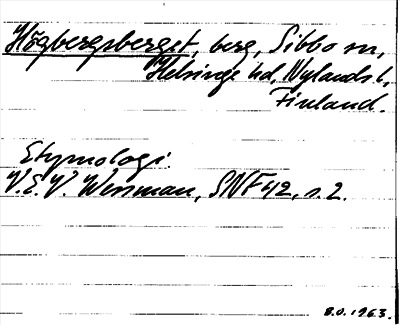 Högbergsberget, berg, Sibbo sn,
Helsinge hd, Nylands l,
Finland.
Etymologi
V.E.V. Wessman, SNF 42, s. 2.
B.O. 1963.